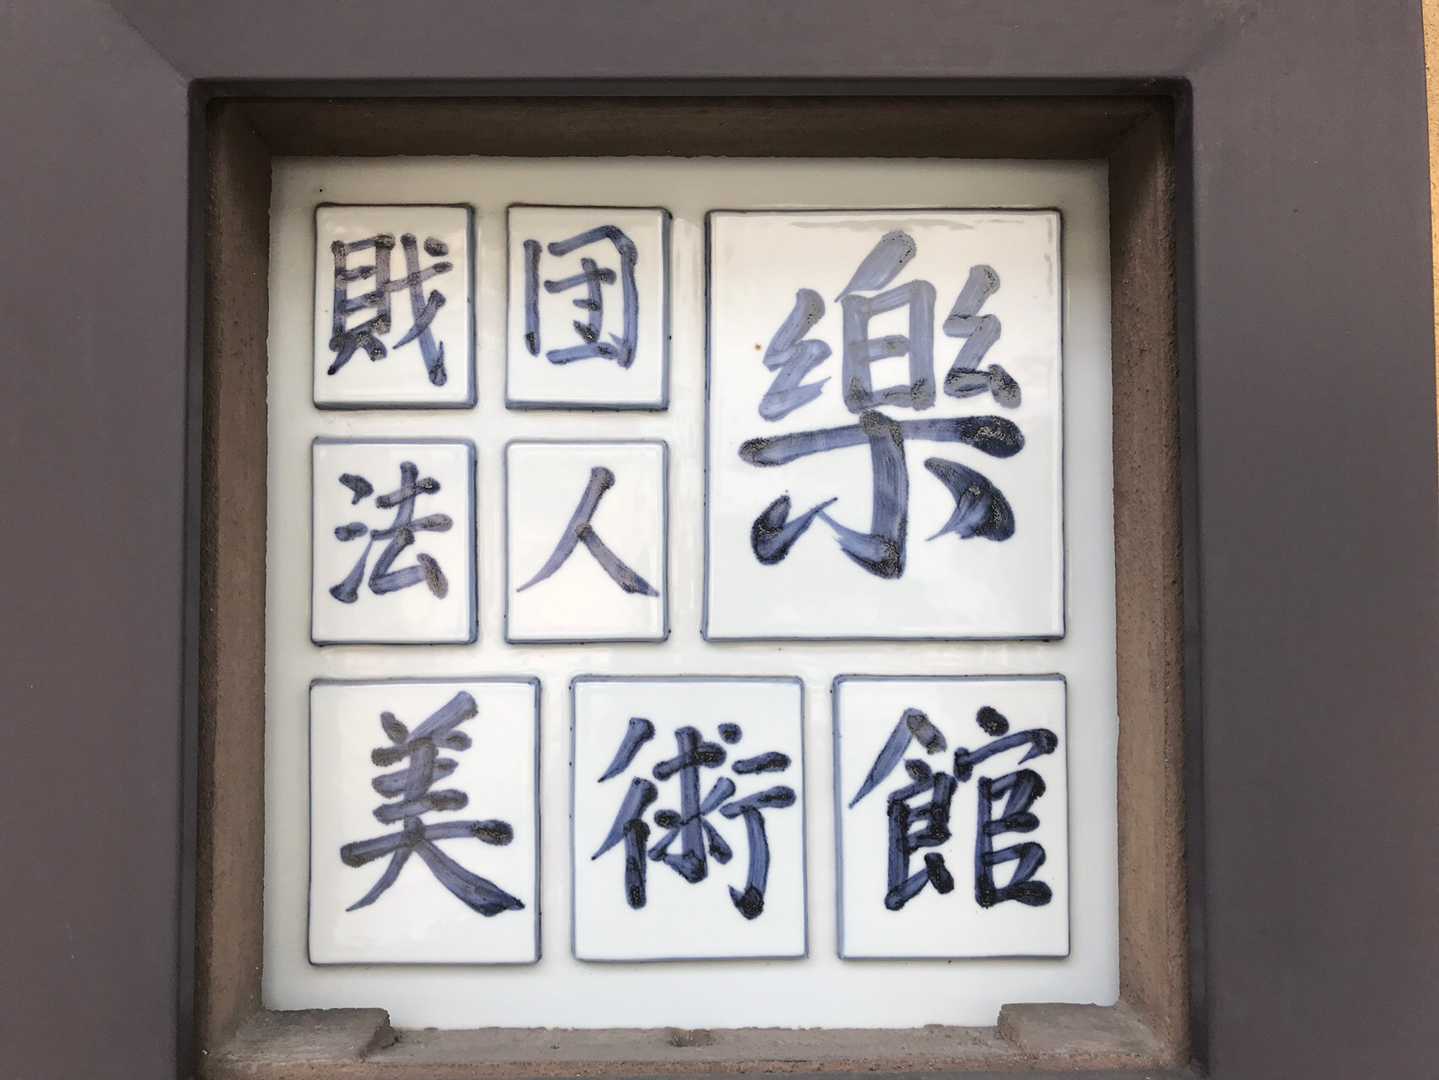 財団
法人
樂
美術館